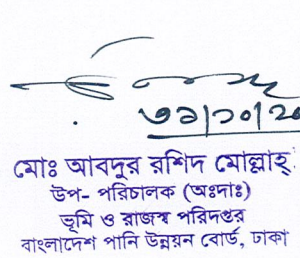 ৩১/১০/২০
মোঃ আবদুর রশিদ মোল্লাহ্
উপ- পরিচালক (অঃদাঃ)
ভূমি ও রাজস্ব পরিদপ্তর
বাংলাদেশ পানি উন্নয়ন বোর্ড, ঢাকা